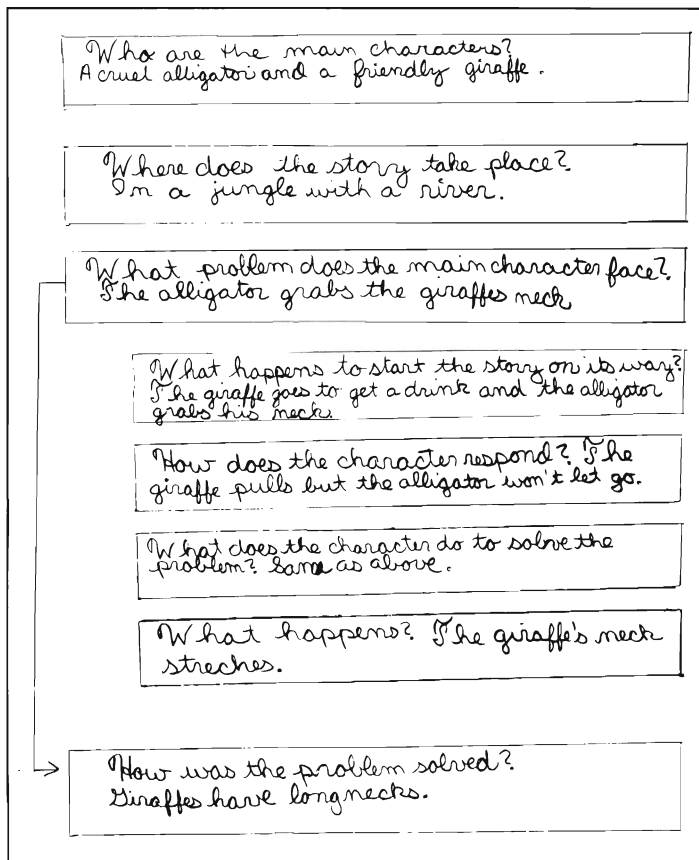 Who are the main characters?
A cruel alligator and a friendly giraffe.
Where does the story take place?
In a jungle with a river.
What problem does the main character face?
The alligator grabs the giraffes neck
What happens to start the story on its way?
The giraffe goes to get a drink and the alligator
grabs his neck.
How does the character respond? The
giraffe pulls but the alligator won't let go.
What does the character do to solve the
problem? Same as above.
What happens? The giraffe's neck
streches.
How was the problem solved?
Giraffes have long necks.